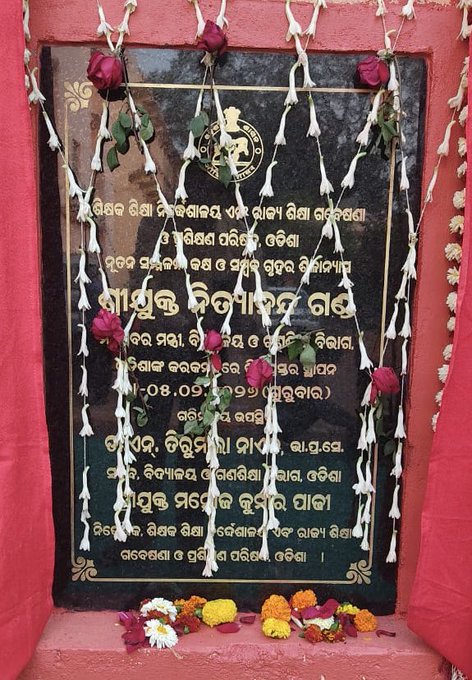 ଶିକ୍ଷକ ଶିକ୍ଷା ନିର୍ଦ୍ଦେଶାଳୟ ଏବଂ ରାଜ୍ୟ ଶିକ୍ଷା ଗବେଷଣା
ଓ ପ୍ରଶିକ୍ଷଣ ପରିଷଦ, ଓଡିଶା
ନୂତନ ସମ୍ମିଳନୀ କକ୍ଷ ଓ ସମ୍ପର୍କ ଗୃହର ଶିଳାନ୍ୟାସ
ଶ୍ରୀଯୁକ୍ତ ନିତ୍ୟାନନ୍ଦ ଗଣ୍ଡ
ମନ୍ତ୍ରୀ, ବିଦ୍ୟାଳୟ ଓ ଗଣଶିକ୍ଷା ବିଭାଗ,
କରକମଳରେ ସ୍ଥାପନ
(ଗୁରୁବାର)
ଗରିମାମୟ ଉପସ୍ଥିତି
ଏନ୍. ତିରୁମାଲା ନାଏକ, ଭା.ପ୍ର.ସେ.
ବିଦ୍ୟାଳୟ ଓ ଗଣଶିକ୍ଷା ବିଭାଗ, ଓଡିଶା
ଶ୍ରୀଯୁକ୍ତ ମନୋଜ କୁମାର ପାଢୀ
ନିର୍ଦ୍ଦେଶକ, ଶିକ୍ଷକ ଶିକ୍ଷା ନିର୍ଦ୍ଦେଶାଳୟ ଏବଂ ରାଜ୍ୟ ଶିକ୍ଷା
ଗବେଷଣା ଓ ପ୍ରଶିକ୍ଷଣ ପରିଷଦ, ଓଡିଶା ।